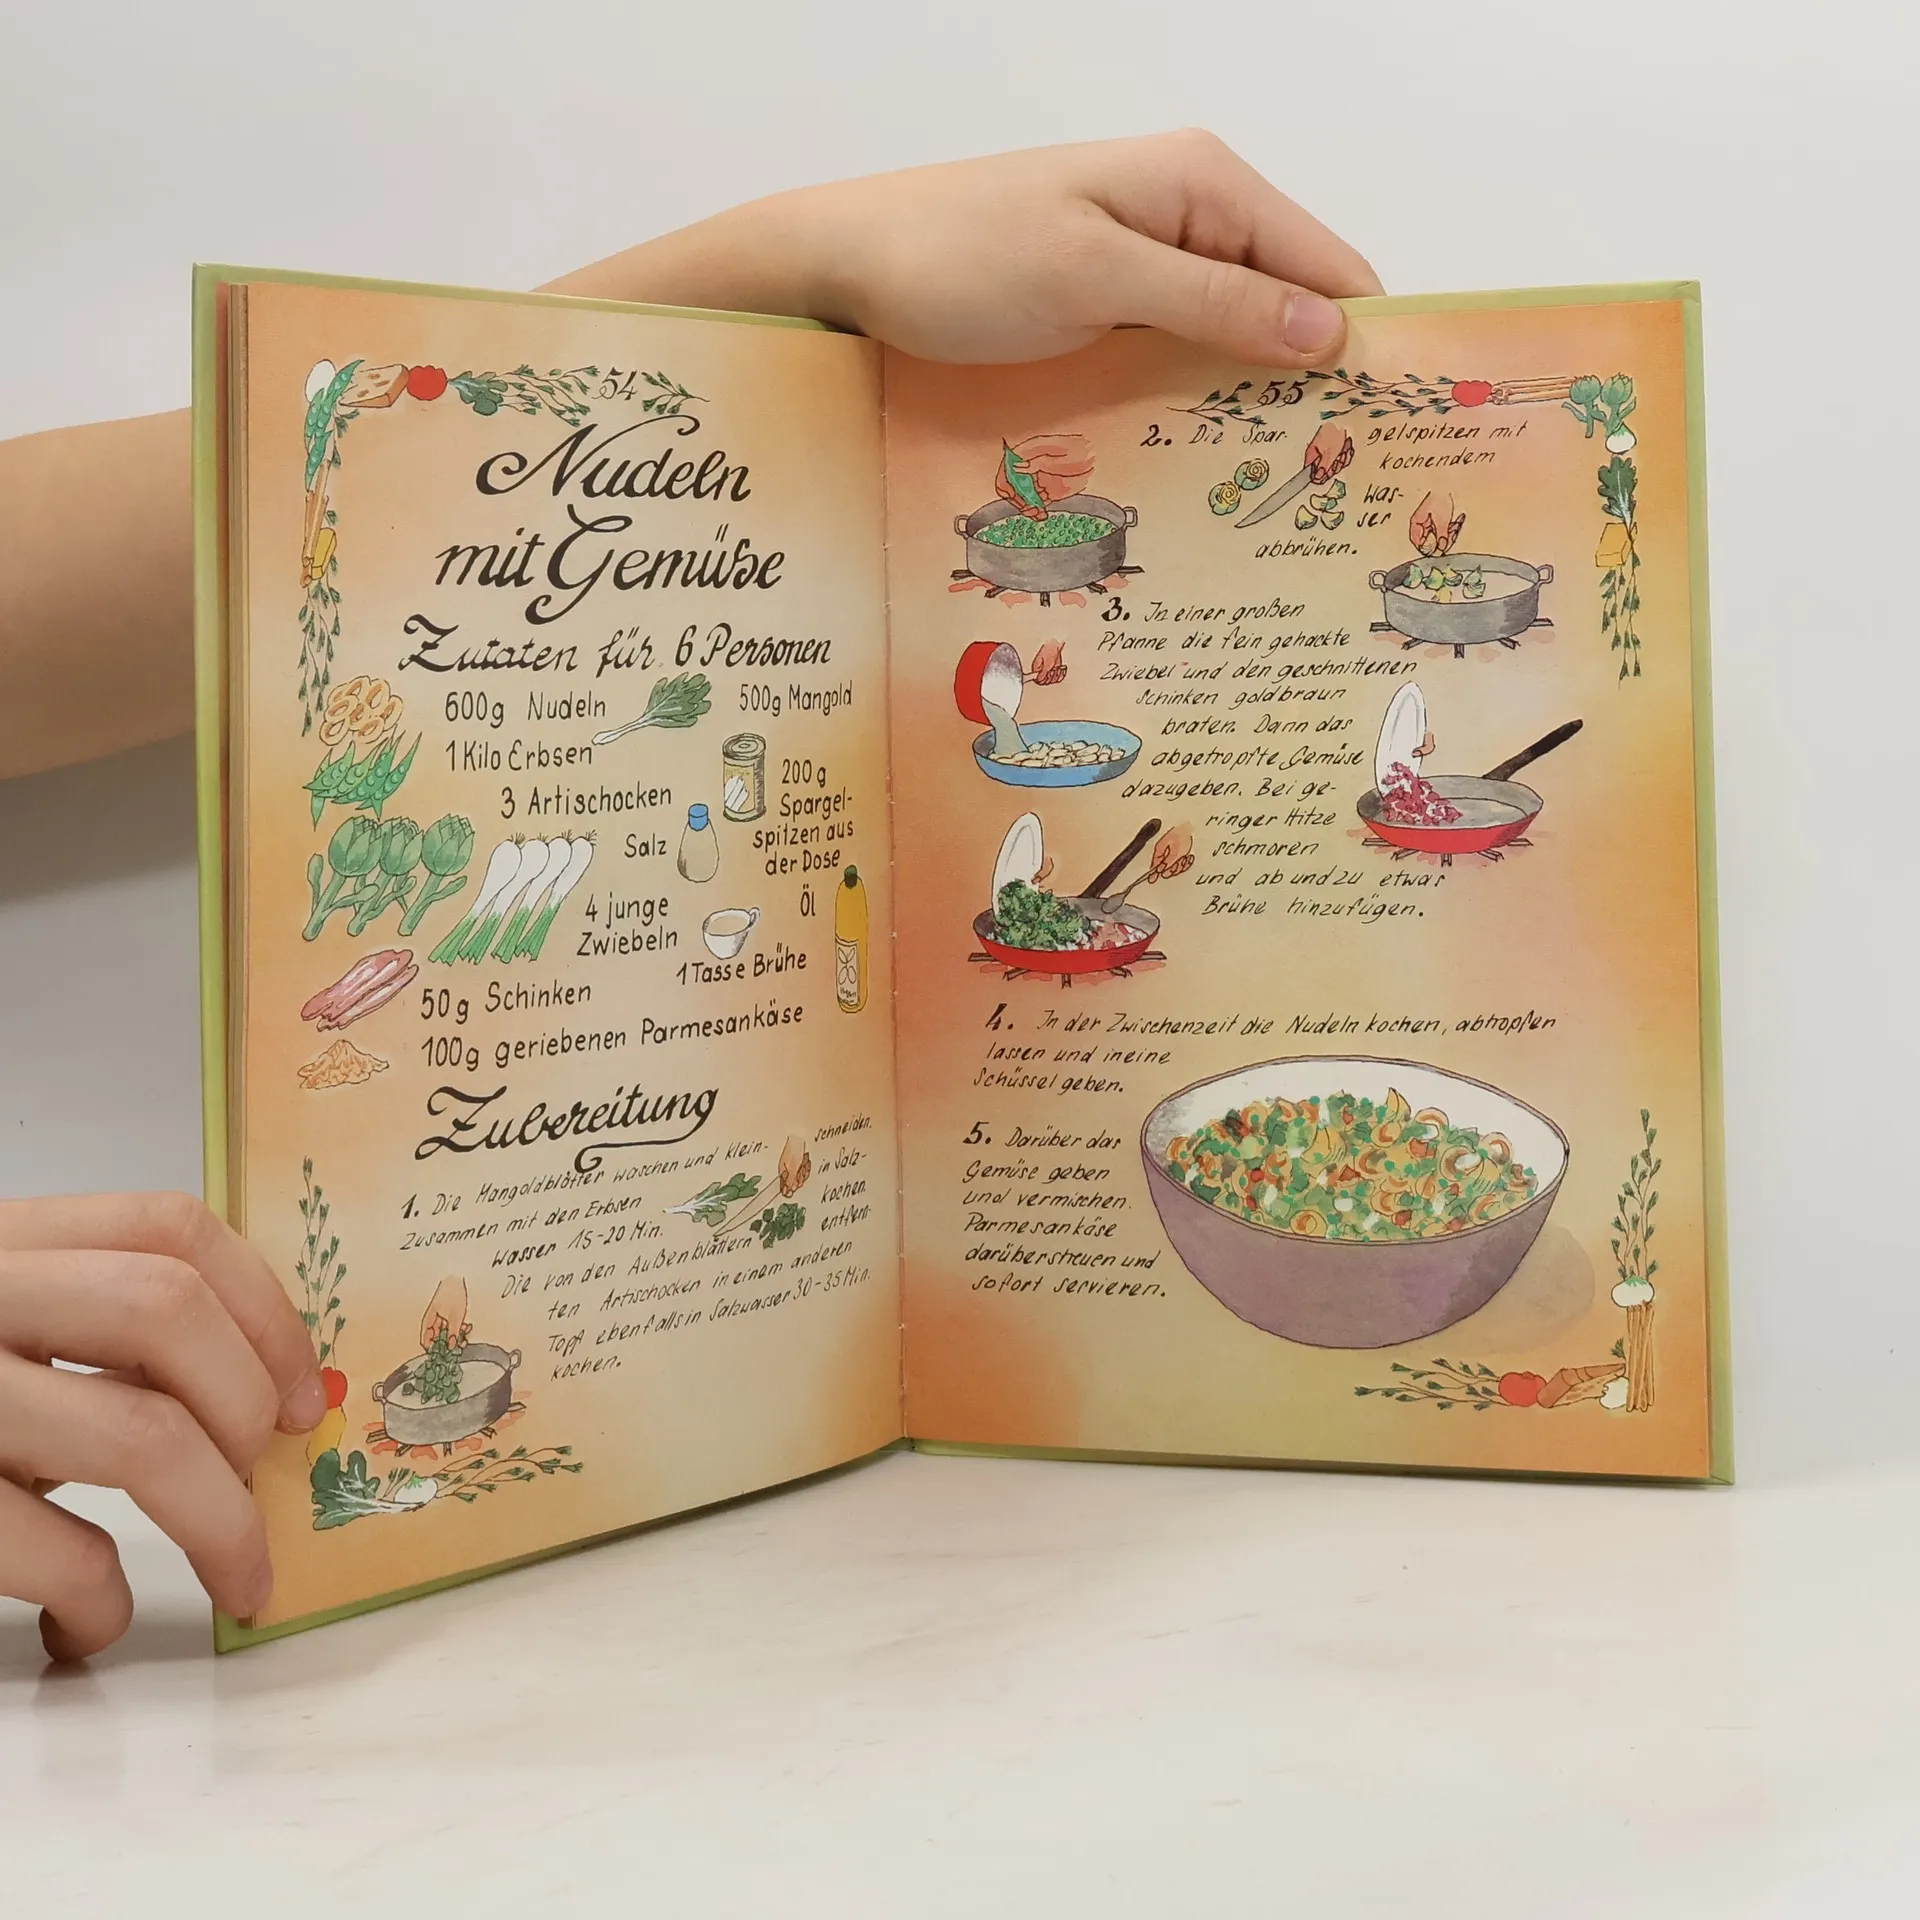 54
Nudeln
mit Gemüse
Zutaten für 6 Personen
600g Nudeln
500g Mangold
1 Kilo Erbsen
3 Artischocken
200g
Spargel-
spitzen aus
der Dose
Salz
4 junge
Zwiebeln
Öl
1 Tasse Brühe
50g Schinken
100g geriebenen Parmesankäse
Zubereitung
1. Die Mangoldblätter waschen und klein- schneiden.
zusammen mit den Erbsen in Salz-
wasser 15-20 Min. kochen.
Die von den Außenblättern entfern-
ten Artischocken in einem anderen
Topf ebenfalls in Salzwasser 30-35 Min.
kochen.
55
2. Die Spar- gelspitzen mit
kochendem
Was-
ser
abbrühen.
3. In einer großen
Pfanne die fein gehackte
Zwiebel und den geschnittenen
Schinken goldbraun
braten. Dann das
abgetropfte Gemüse
dazugeben. Bei ge-
ringer Hitze
schmoren
und ab und zu etwas
Brühe hinzufügen.
4. In der Zwischenzeit die Nudeln kochen, abtropfen
lassen und in eine
Schüssel geben.
5. Darüber das
Gemüse geben
und vermischen.
Parmesankäse
darüberstreuen und
sofort servieren.